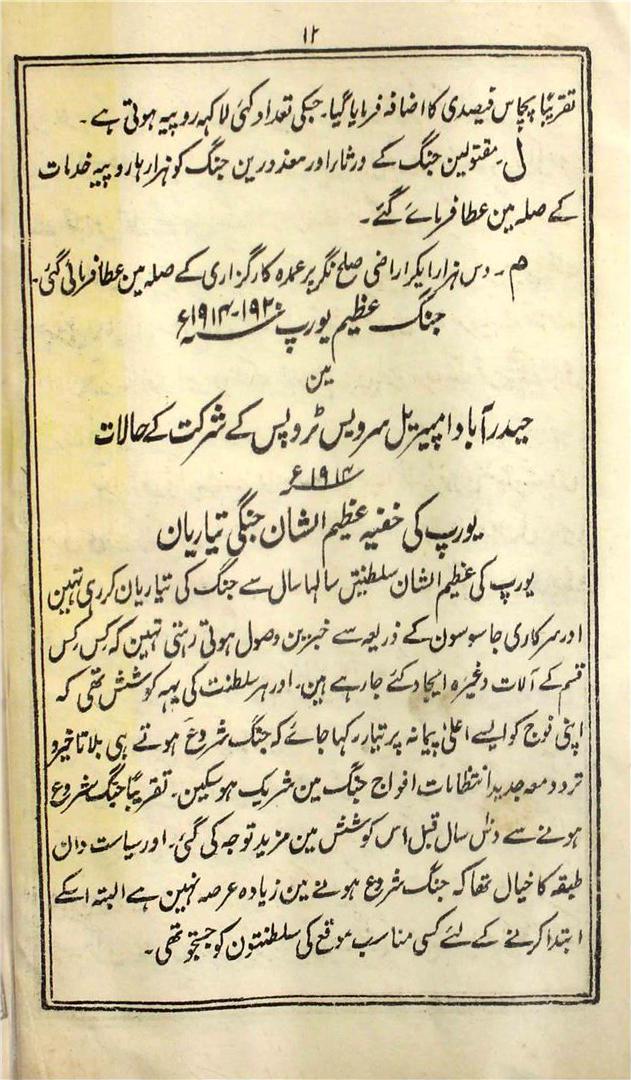 ۱۲
تقریباً پچاس فیصدی کا اضافہ فرمایا گیا۔ جسکی تعداد کئی لاکہہ روپیہ ہوتی ہے۔
ل۔ مقتولین جنگ کے ورثار اور معذورین جنگ کو ہزارہا روپیہ خدمات
کے صلہ مین عطا فرمائے گئے۔
م۔ دس ہزار ایکڑ اراضی صلح نگر بر عمدہ کارگزاری کے صلہ مین عطا فرمائی گئی۔
جنگ عظیم یورپ ۱۹۲۰-۱۹۱۴ء
مین
حیدرآباد امپیریل سرویس ٹروپس کے شرکت کے حالات
۱۹۱۴ء
یورپ کی خفیہ عظیم الشان جنگی تیاریان
یورپ کی عظیم الشان سلطنتین سالہا سال سے جنگ کی تیاریان کر رہی تہین
اور سرکاری جاسوسون کے ذریعہ سے خبرین وصول ہوتی رہتی تہین کہ کِس کِس
قسم کے آلات وغیرہ ایجاد کئے جا رہے ہین۔ اور ہر سلطنت کی یہہ کوشش تھی کہ
اپنی فوج کو ایسے اعلیٰ پیمانہ پر تیار رکہا جائے کہ جنگ شروع ہوتے ہی بلا تاخیر و
تردد معہ جدید انتظامات افواج جنگ مین شریک ہو سکین۔ تقریباً جنگ شروع
ہونے سے دس سال قبل اس کوشش مین مزید توجہ کی گئی۔ اور سیاست دان
طبقہ کا خیال تھا کہ جنگ شروع ہونے مین زیادہ عرصہ نہین ہے البتہ اسکے
ابتدا کرنے کے لئے کسی مناسب موقع کی سلطنتون کو جستجو تھی۔